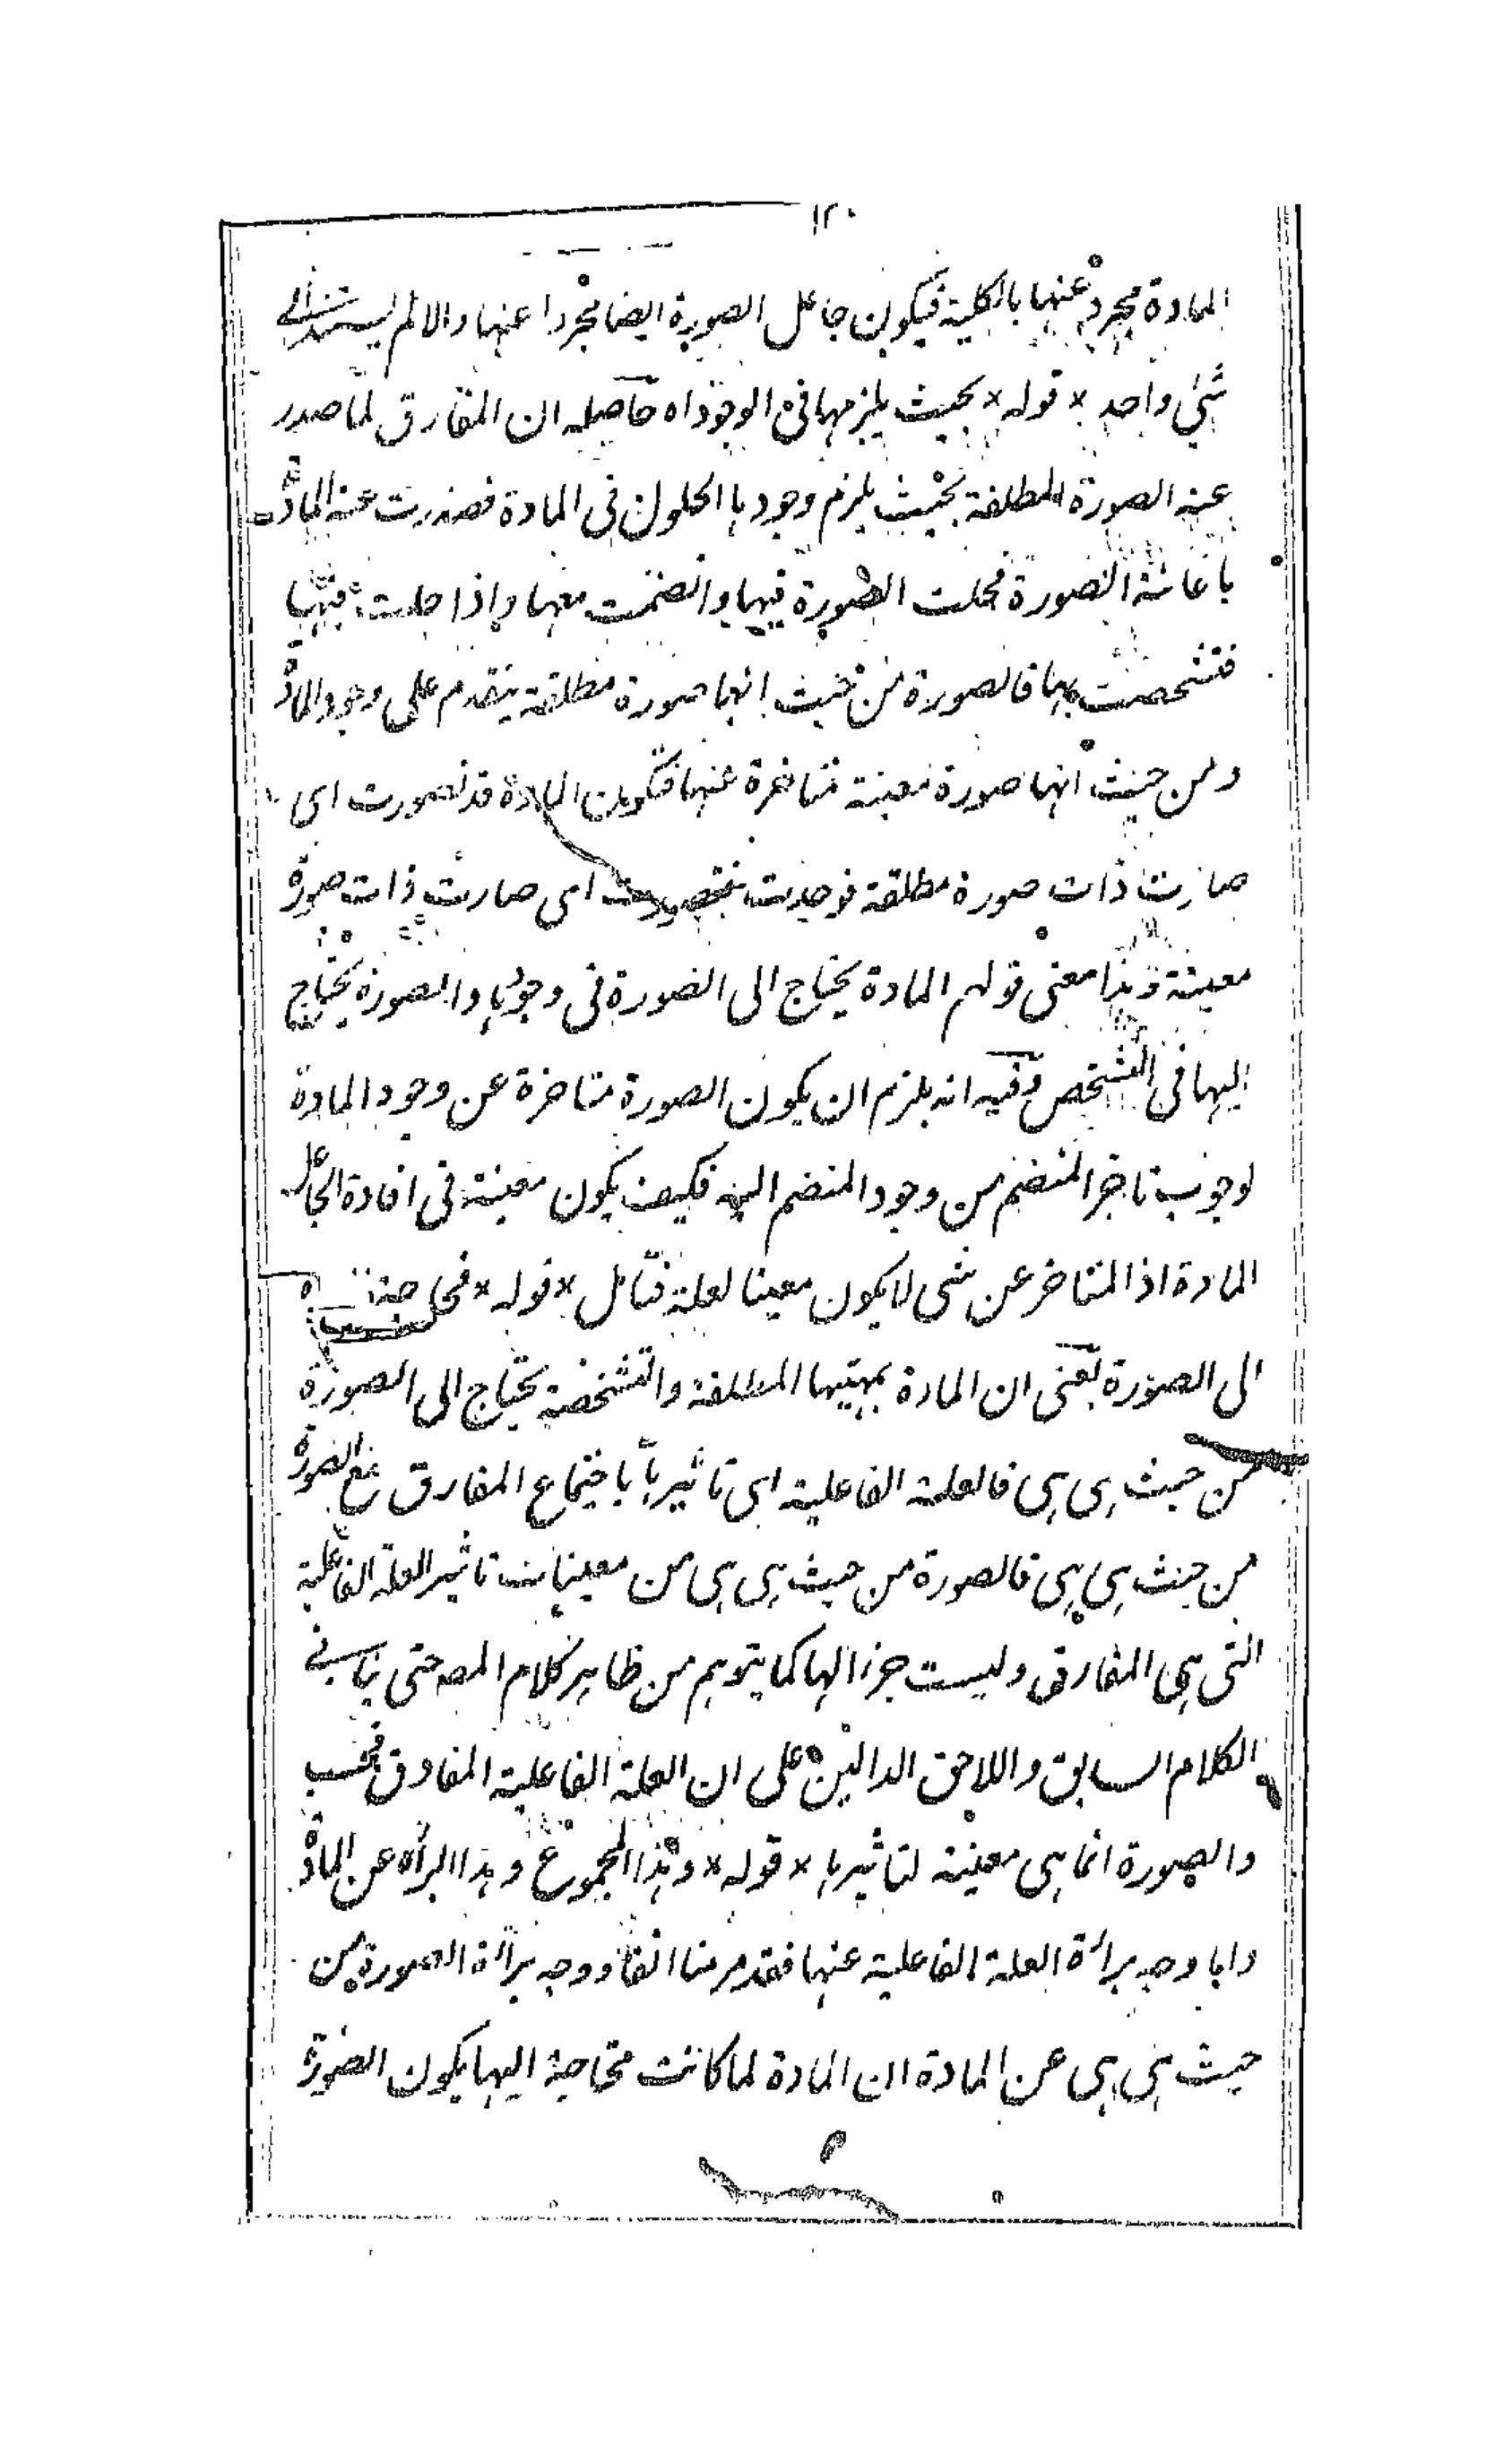 ١٢٠
المادة مجرد عنها بالكلية فيكون جاعل الصورة ايضا مجردا عنها والا لم يستند الى
شئ واحد × قوله × بحيث يلزمها فى الوجود اه حاصله ان المفارق لما صدر
عنه الصورة المطلقة بحيث يلزم وجودها الحلول فى المادة فصدرت عنه المادة
باعانة الصورة فحلت الصورة فيها وانضمت معها واذا حلت فيها
فتشخصت بها فالصورة من حيث انها صورة مطلقة يتقدم على وجود المادة
ومن حيث انها صورة معينة متاخرة عنها فيكون المادة قد تصورت اى
صارت ذات صورة مطلقة فوجدت فتصورت اى صارت ذات صورة
معينة وهذا معنى قولهم المادة يحتاج الى الصورة فى وجودها والصورة يحتاج
اليها فى التشخص وفيه انه يلزم ان يكون الصورة متاخرة عن وجود المادة
لوجوب تاخر المنضم من وجود المنضم اليه فكيف يكون معينة فى افادة الجاعل
المادة اذ المتاخر عن شى لا يكون معينا لعلته فتامل × قوله × محتاجة
الى الصورة يعنى ان المادة بمهيتها المطلقة والمتشخصة يحتاج الى الصورة
من حيث هى هى فالعلة الفاعلية اى تاثيرها باجتماع المفارق مع الصورة
من حيث هى هى فالصورة من حيث هى هى من معينات تاثير العلة الفاعلية
التى هى المفارق وليست جزءا لها كما يتوهم من ظاهر كلام المصـ حتى ينافى
الكلام السابق واللاحق الدالين على ان العلة الفاعلية المفارق فحسب
والصورة انما هى معينة لتاثيرها × قوله × وهذا المجموع وهذا البرأة عن المادة
واما وجه برأة العلة الفاعلية عنها فقد مر منا انفا ووجه برأة الصورة من
حيث هى هى عن المادة ان المادة لما كانت محتاجة اليها يكون الصورة